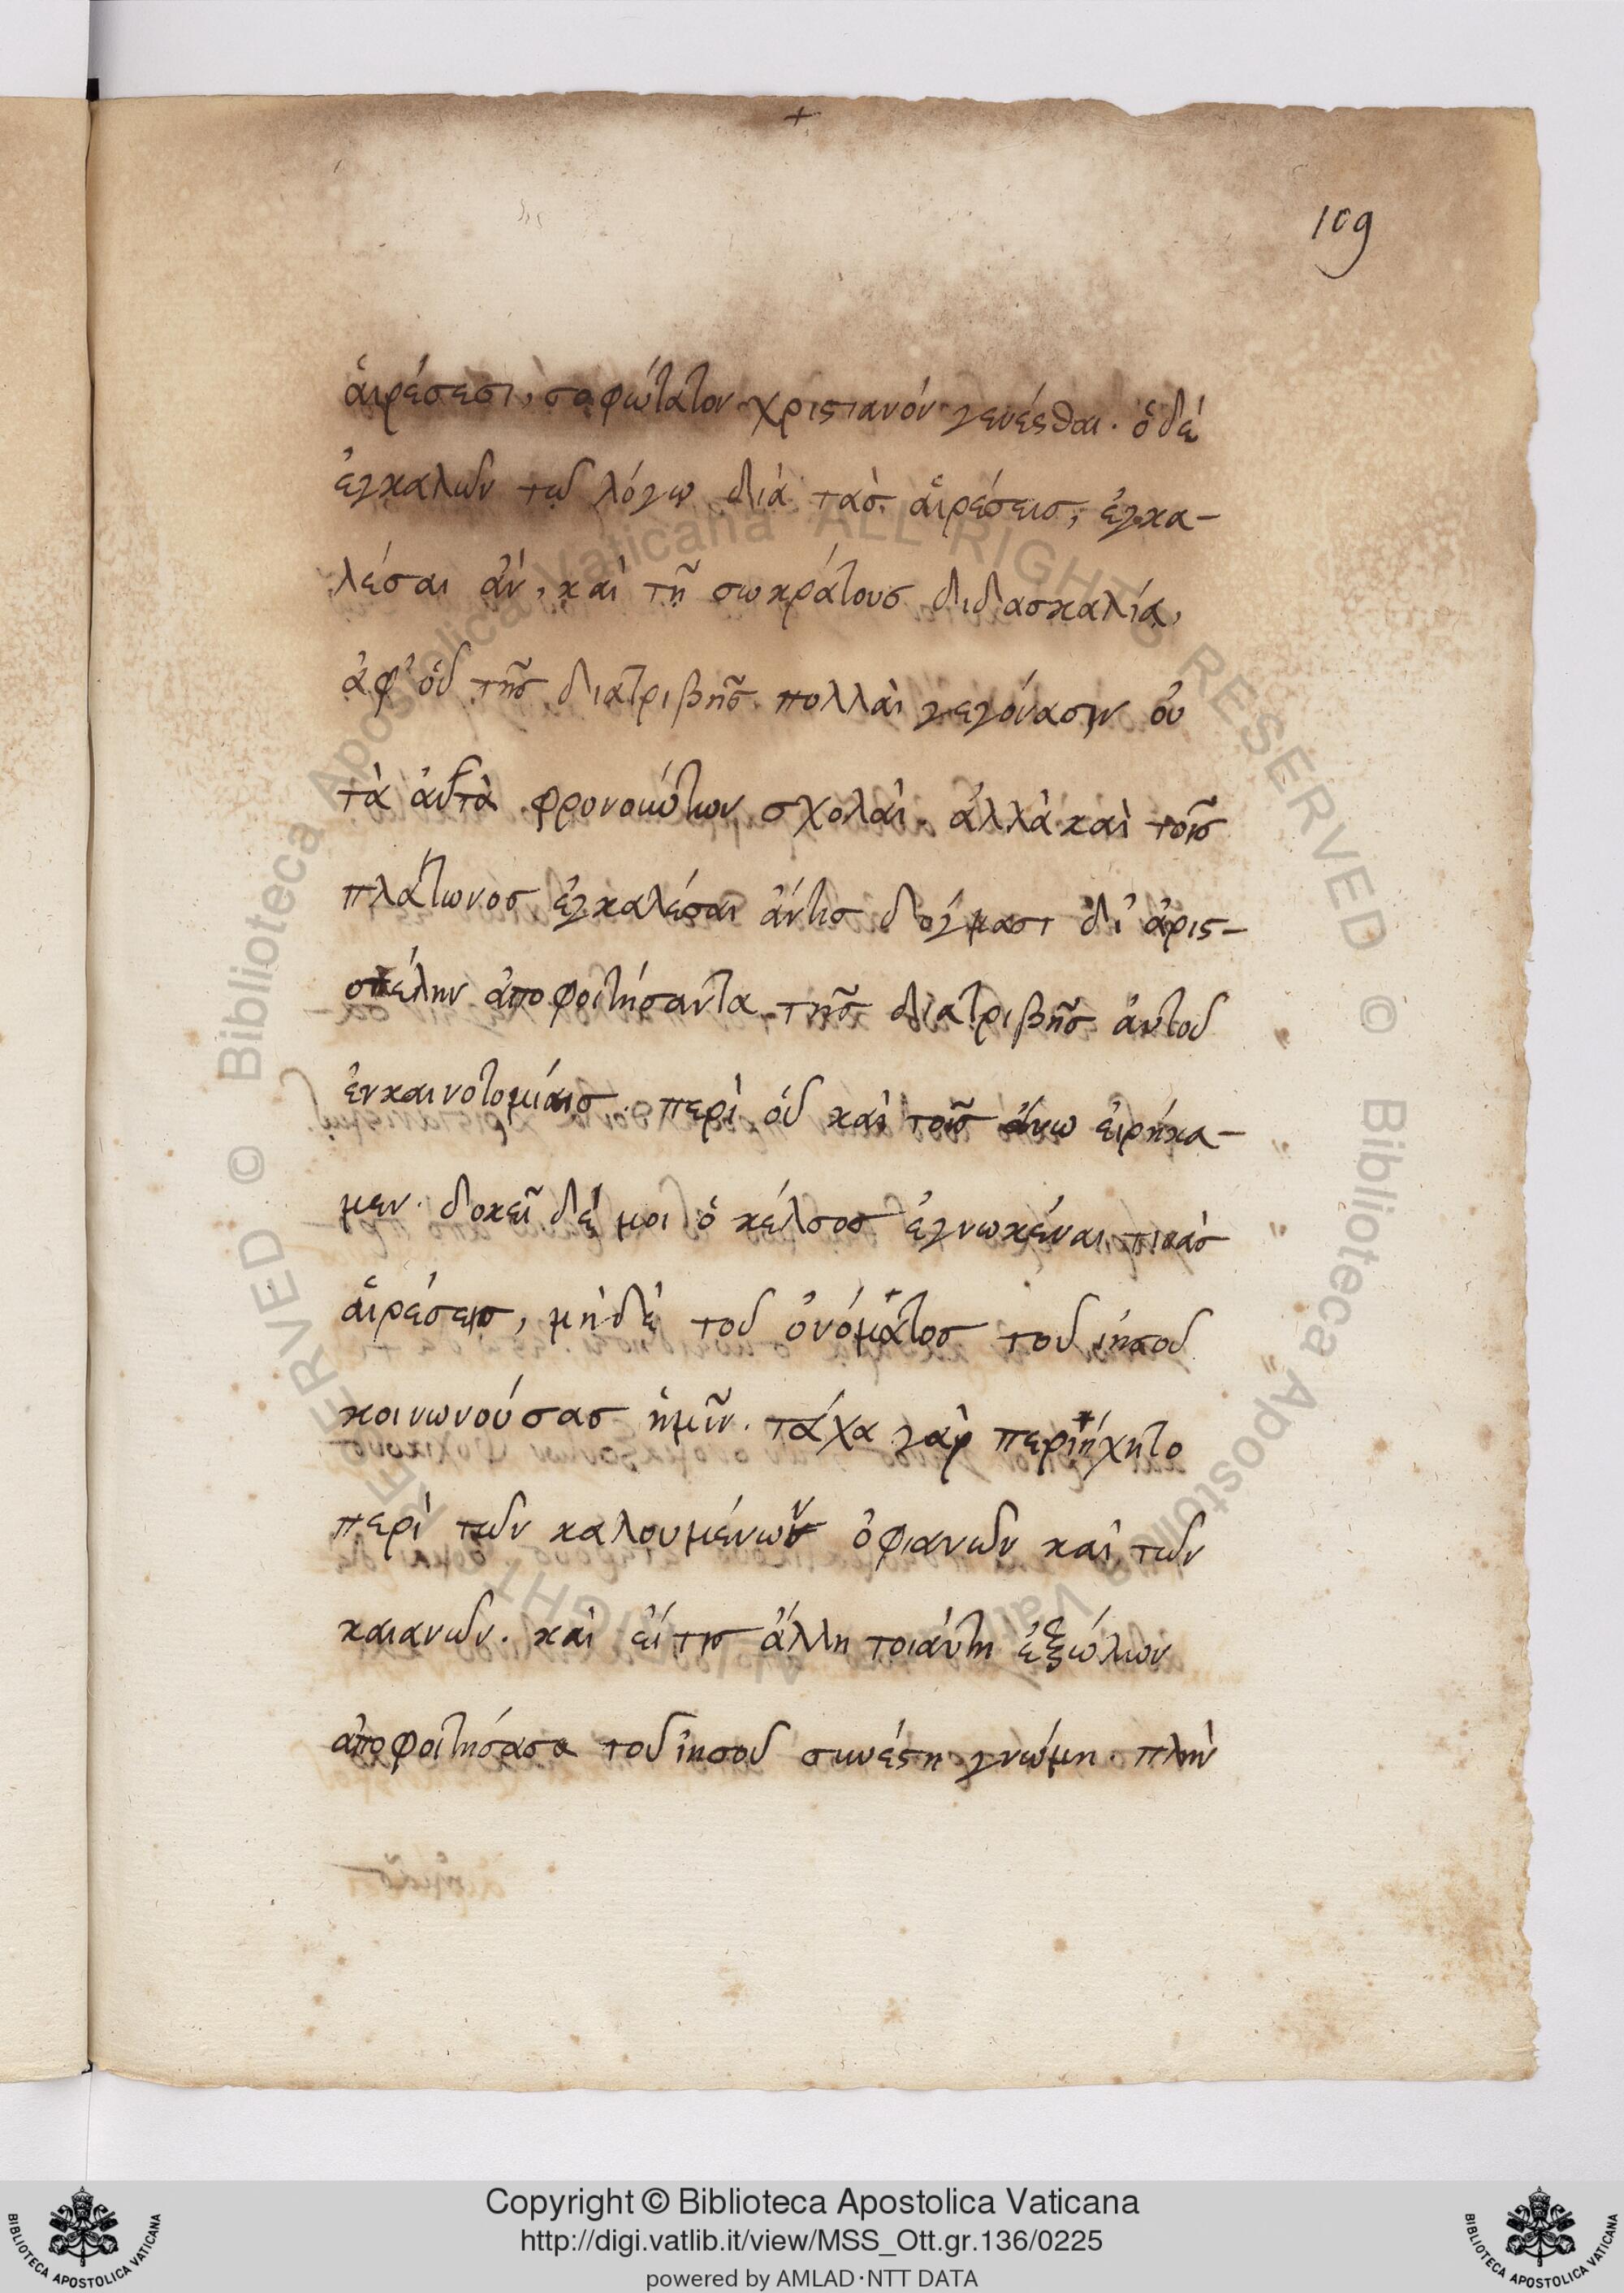 109
αἱρέσεσι, σοφώτατον χριστιανὸν γενέσθαι. ὁ δὲ
ἐγκαλῶν τῷ λόγῳ διὰ τὰς αἱρέσεις, ἐγκα-
λέσαι ἂν, καὶ τῇ σωκράτους διδασκαλίᾳ,
ἀφ' οὗ τῆς διατριβῆς πολλαὶ γεγόνασιν οὐ
τὰ αὐτὰ φρονούντων σχολαί. ἀλλὰ καὶ τοῖς
πλάτωνος ἐγκαλέσαι ἄν τις δόγμασι δι' ἀρισ-
οτέλην ἀποφοιτήσαντα τῆς διατριβῆς αὐτοῦ
ἐν καινοτομίαις. περὶ οὗ καὶ τοῖς ἄνω εἰρήκα-
μεν. δοκεῖ δέ μοι ὁ κέλσος ἐγνωκέναι τινὰς
αἱρέσεις, μὴ δὲ τοῦ ὀνόματος τοῦ ἰησοῦ
κοινωνούσας ἡμῖν. τάχα γὰρ περιήχητο
περὶ τῶν καλουμένων ὀφιανῶν καὶ τῶν
καιανῶν. καὶ εἴ τις ἄλλη τοιαύτη ἐξώλων
ἀποφοιτήσασα τοῦ ἰησοῦ συνέστη γνώμη. πλὴν
Copyright © Biblioteca Apostolica Vaticana
http://digi.vatlib.it/view/MSS_Ott.gr.136/0225
powered by AMLAD·NTT DATA
BIBLIOTECA APOSTOLICA VATICANA
BIBLIOTECA APOSTOLICA VATICANA